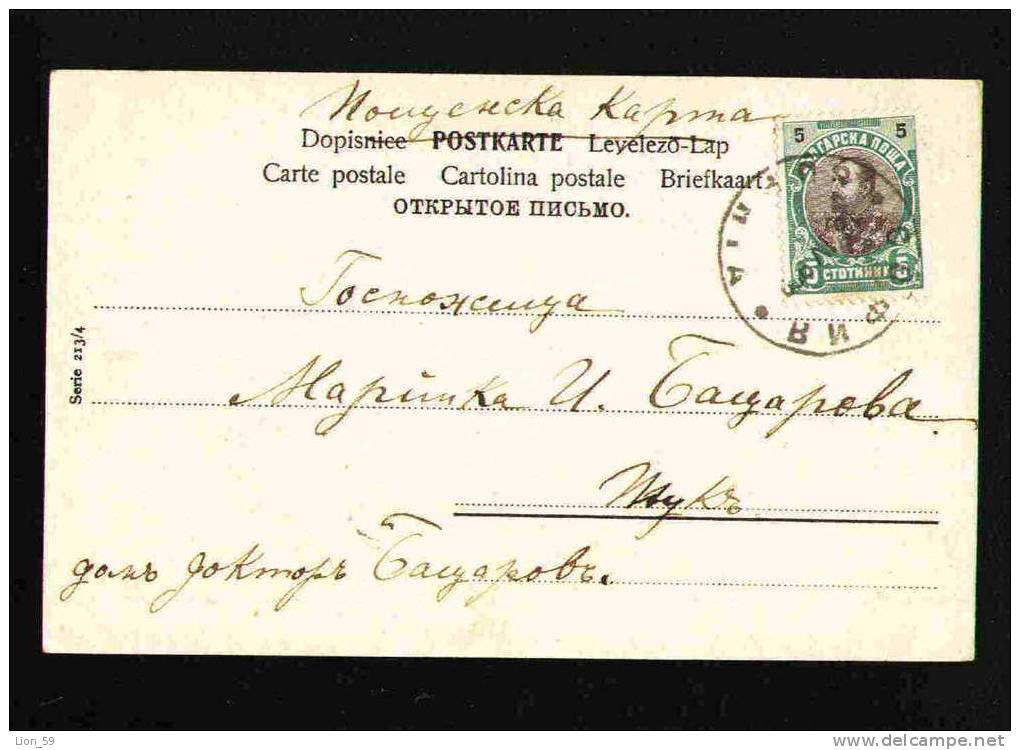 Пощенска карта
Dopisnice POSTKARTE Levelező-Lap
Carte postale Cartolina postale Briefkaart
ОТКРЫТОЕ ПИСЬМО.
5 5
ЪЛГАРСКА ПОЩА
5 СТОТИНКИ 5
СОФИЯ
Госпожица
Марийка И. Бащарова
Тукъ
домъ Докторъ Бащаровъ.
Serie 213/4
Lion_59
www.delcampe.net